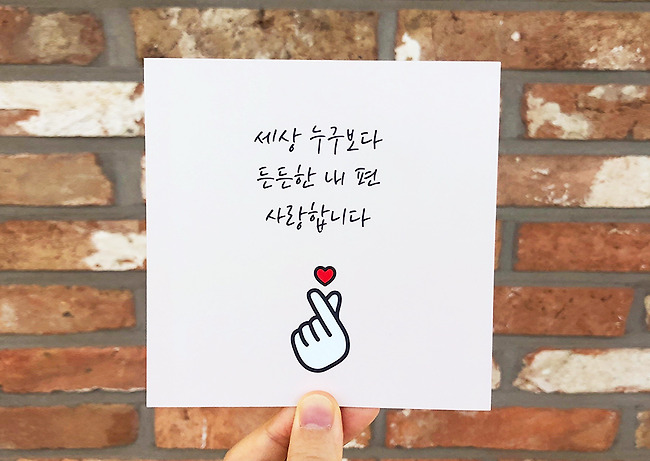 세상 누구보다
든든한 내 편
사랑합니다